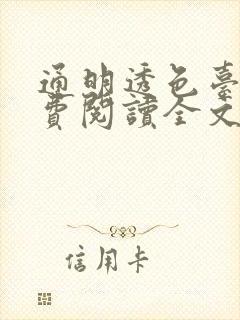 通明透色臺
費閱讀全文
信用卡